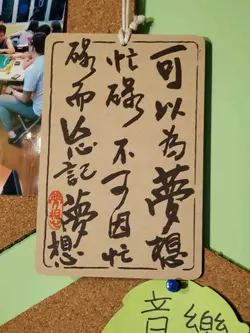 可以為夢想
忙碌 不可因忙
碌而忘記夢想
夢想
音樂